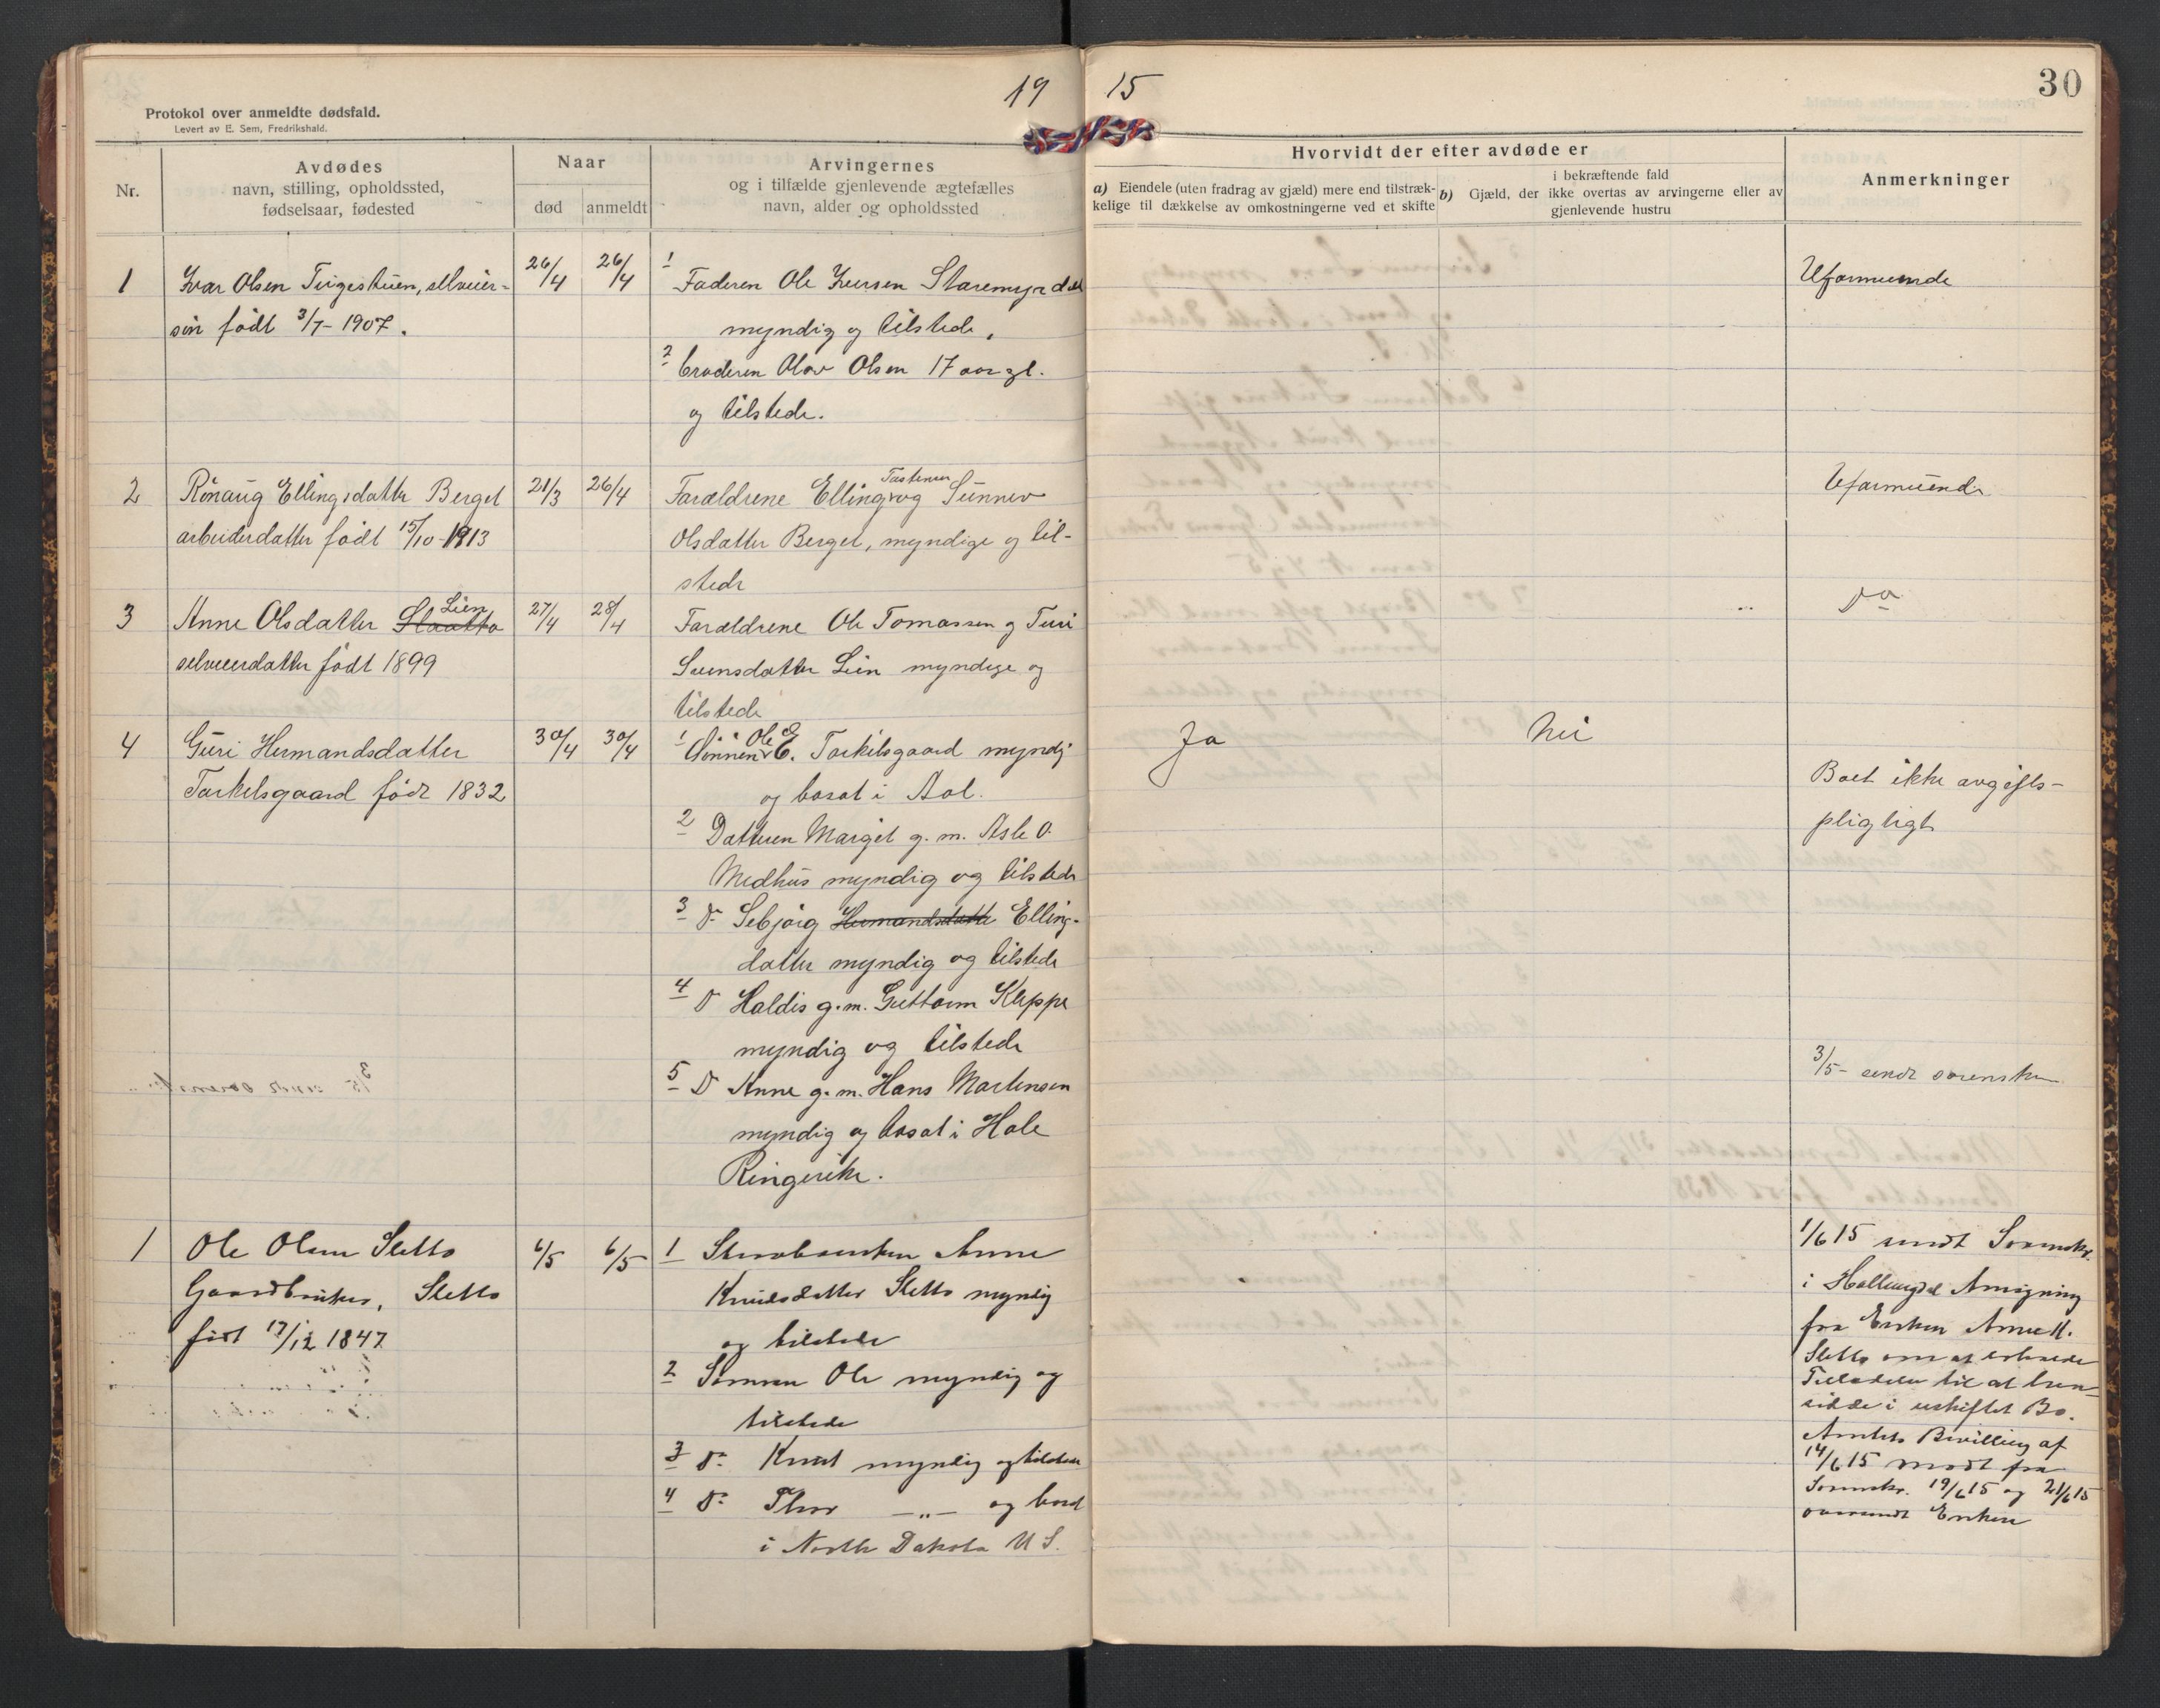 19 15
30
Protokol over anmeldte dødsfald.
Levert av E. Sem, Fredrikshald.
Nr.
Avdødes
navn, stilling, opholdssted,
fødselsaar, fødested
Naar
død
anmeldt
Arvingernes
og i tilfælde gjenlevende ægtefælles
navn, alder og opholdssted
Hvorvidt der efter avdøde er
a) Eiendele (uten fradrag av gjæld) mere end tilstræk-
kelige til dækkelse av omkostningerne ved et skifte
i bekræftende fald
b) Gjæld, der ikke overtas av arvingerne eller av
gjenlevende hustru
Anmerkninger
1
Ivar Olsen selveier-
søn født 3/7-1907.
26/4
26/4
1 Faderen Ole Iversen
myndig og tilstede.
2 broderen Olav Olsen 17 aar gl.
og tilstede.
Uformuende
2
Rönaug Ellingsdatter Berget
arbeiderdatter født 15/10-1913
21/3
26/4
Forældrene Elling Tostensen og Sünnev
Olsdatter Berget, myndige og til-
stede
Uformuende
3
Anne Olsdatter Slaatto Lien
selveierdatter født 1899
27/4
28/4
Forældrene Ole Tomassen og Turi
Svensdatter Lien myndige og
tilstede
" Do
4
Guri Hermandsdatter
Torkelsgaard født 1832
30/4
30/4
1 Sønnen Ole E. Torkilsgaard myndig
og bosat i Aal.
2 Datteren Margit g. m. Asle O.
Medhus myndig og tilstede
3 Do Sebjørg Hermandsdatter Ellings-
datter myndig og tilstede
4 Do Haldis g. m. Guttorm Kleppe
myndig og tilstede
5 Do Anne g. m. Hans Martensen
myndig og bosat i Hole
Ringerike.
Ja
Nei
Boet ikke avgifts-
pligtigt
3/5- sendt sorenskr.
1
Ole Olsen Sletto
Gaardbruker, Sletto
født 17/12 1847
6/5
6/5
1 Anne
Knudsdatter Sletto myndig
og tilstede
2 Sønnen Ole myndig og
tilstede
3 Do Knut myndig og tilstede
4 Do Thor -"- og bosat
i North Dakota U S.
1/6 15 sendt Sorenskr.
i Hallingdal Ansøgning
fra Enken Anne K.
Sletto om at erholde
Tilladelse til at hen-
sidde i uskiftet Bo.
Amtets Bevilling af
14/6 15 modt fra
Sorenskr. 19/6 15 og 21/6 15
oversendt Enken